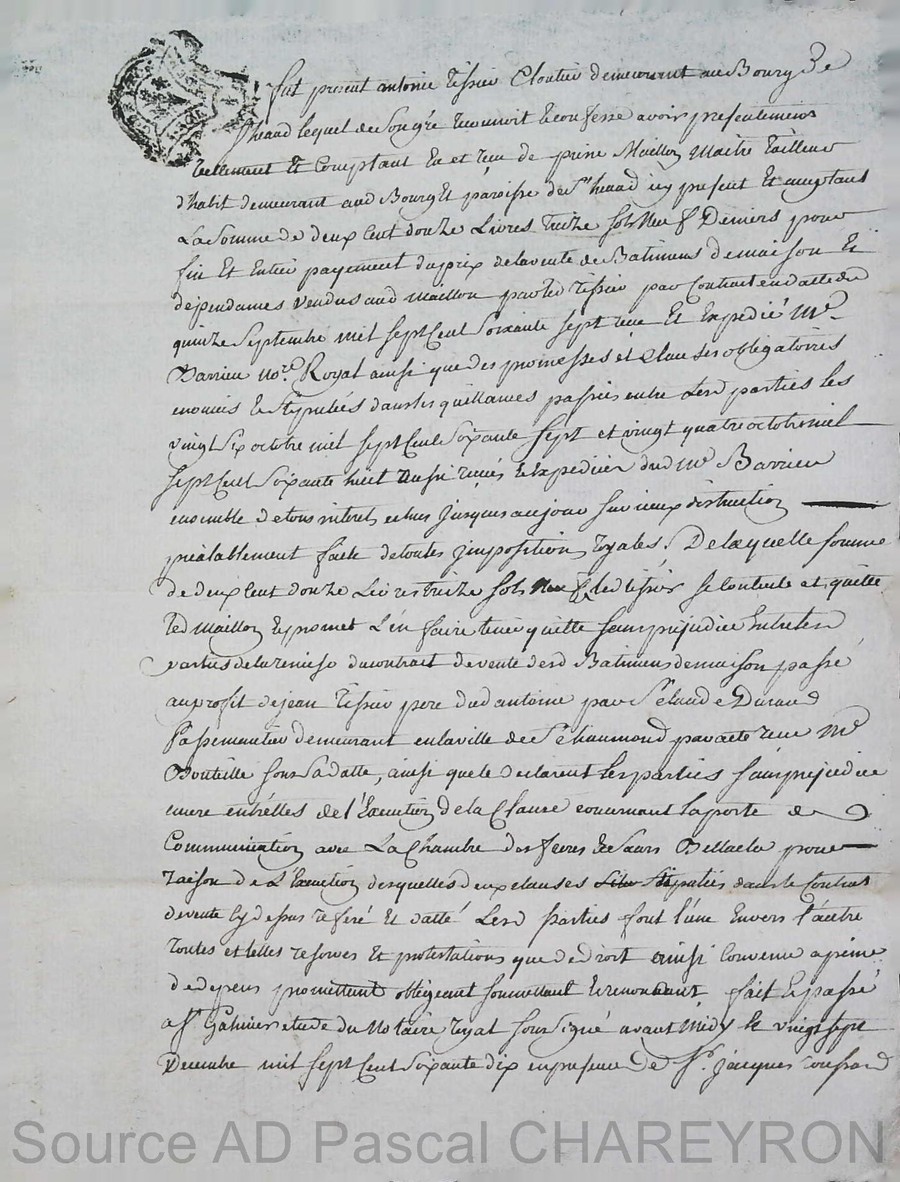 fut present antoine tissier Cloutier demeurant au Bourg De
heand lequel de son gré reconnoit & confesse avoir presentement
reellement & Comptant eu et recu de prine Maillon Maitre tailleur
d'habit demeurant aud Bourg & paroisse de St heand icy present & acceptant
La somme de deux Cent douze Livres treize sols neuf Deniers pour
fin Et Entier payement du prix de la vente de Batimens de maison Et
dependances vendus aud Maillon par led tissier par Contract en datte du
quinze Septembre mil sept Cent Soixante sept recu Et Expedié Me
Barrieu nore Royal ainsi que des promesses et Clauses obligatoires
enoncés & stipulées dans les quittances passées entre Lesd parties les
vingt Six octobre mil sept Cent Soixante Sept et vingt quatre octobre mil
sept Cent Soixante huit aussi recues & expediées dud Me Barrieu
ensemble de tous interets echus jusques au jour sur iceux distraction
préalablement faite de toutes impositions royales. De laquelle somme
de deux Cent douze Livres treize sols neuf d led tissier se contente et quitte
led Maillon & promet L'en faire tenir quitte sans prejudice Entre les
parties de la remise du contrat de vente desd Batimens de maison passé
au profit de jean tissier pere dud antoine par Sr claude Durand
passementier demeurant en la ville de St chaumond par acte recu Me
Bouteille sous sa datte, ainsi que le declarent les parties sans prejudice
encore entr'elles de l'Execution de la Clause concernant la porte de
Communication avec La Chambre des freres & Sœurs pour
raison de L'Execution desquelles deux clauses stipulées dans le Contrat
de vente cy dessus referé Et datté Lesd parties font l'une Envers l'autre
toutes et telles reserves & protestations que de droit ainsi Convenu a peine
de depens promettant obligeant soumettant & renoncant fait & passé
a St Galmier etude du Notaire royal soussigné avant Midy le vingt sept
Decembre mil sept Cent Soixante dix en presence de Sr jacques
Source AD Pascal CHAREYRON